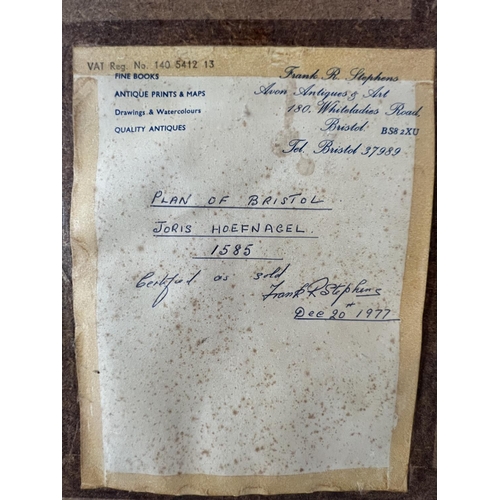 VAT Reg. No. 140 5412 13
FINE BOOKS
ANTIQUE PRINTS & MAPS
Drawings & Watercolours
QUALITY ANTIQUES
Frank R. Stephens
Avon Antiques & Art
180. Whiteladies Road
Bristol BS8 2XU
Tel. Bristol 37989
PLAN OF BRISTOL
JORIS HOEFNAGEL.
1585
Certified as sold
Frank R Stephens
Dec 20th 1977